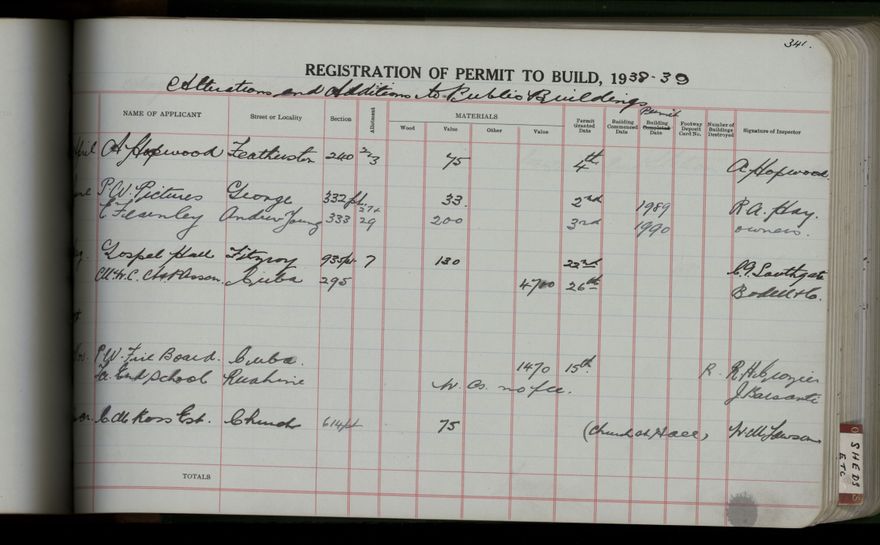 341.
REGISTRATION OF PERMIT TO BUILD, 1938-39
Alterations and Additions to Public Buildings
NAME OF APPLICANT Street or Locality Section Allotment MATERIALS Permit Granted Date Building Commenced Date Permit Building Completed Date Footway Deposit Card No. Number of Buildings Destroyed Signature of Inspector
Wood Value Other Value
A Hopwood Featherston 240 2/3 75 4th A Hopwood
P.W. Pictures George 332 pt 33 2nd 1989 R A. Hay.
C Fearnley Andrew Young 333 27+29 200 3rd 1990 owners.
Gospel Hall Fitzroy 935 pt 7 130 22nd C.G. Southgate
Cuba 295 4700 26th Bodell & Co.
P.W. Fire Board. Cuba. 1470 15th R. R H Grozier
School Ruahine no fee.
Church 614 pt 75 (Church Hall)
TOTALS
SHEDS
ETC